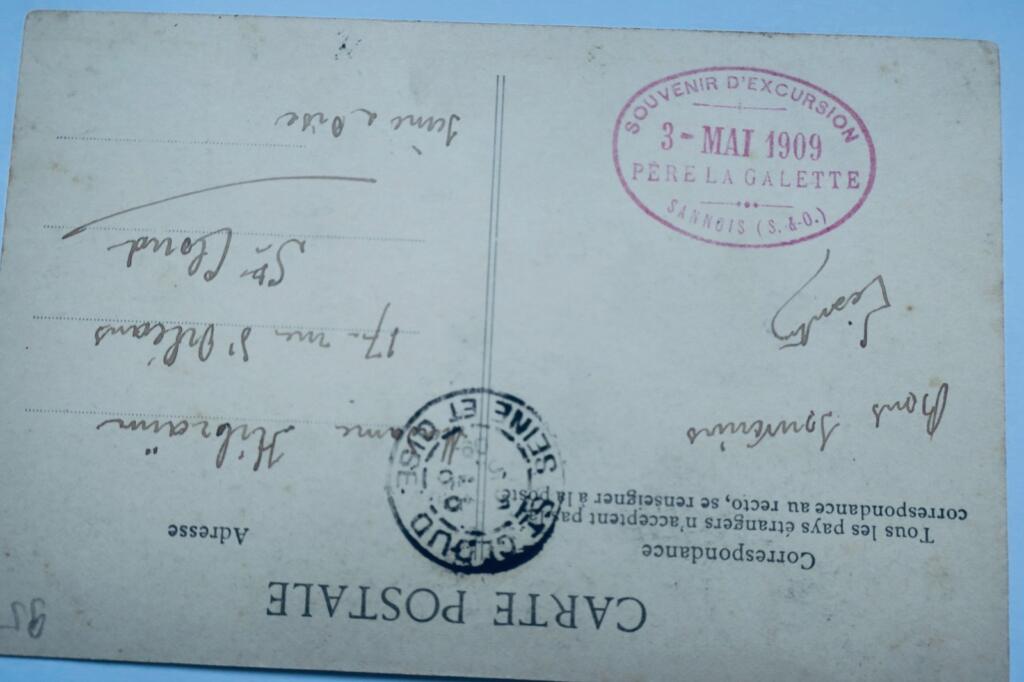 CARTE POSTALE
Correspondance
Tous les pays étrangers n'acceptent pas la
correspondance au recto, se renseigner à la poste
Bons souvenirs
Adresse
Mme Hibraim
17 rue d'Orléans
St Cloud
Seine & Oise
ST CLOUD
SEINE ET OISE
SOUVENIR D'EXCURSION
3 - MAI 1909
PÈRE LA GALETTE
SANNOIS (S.&O.)
95